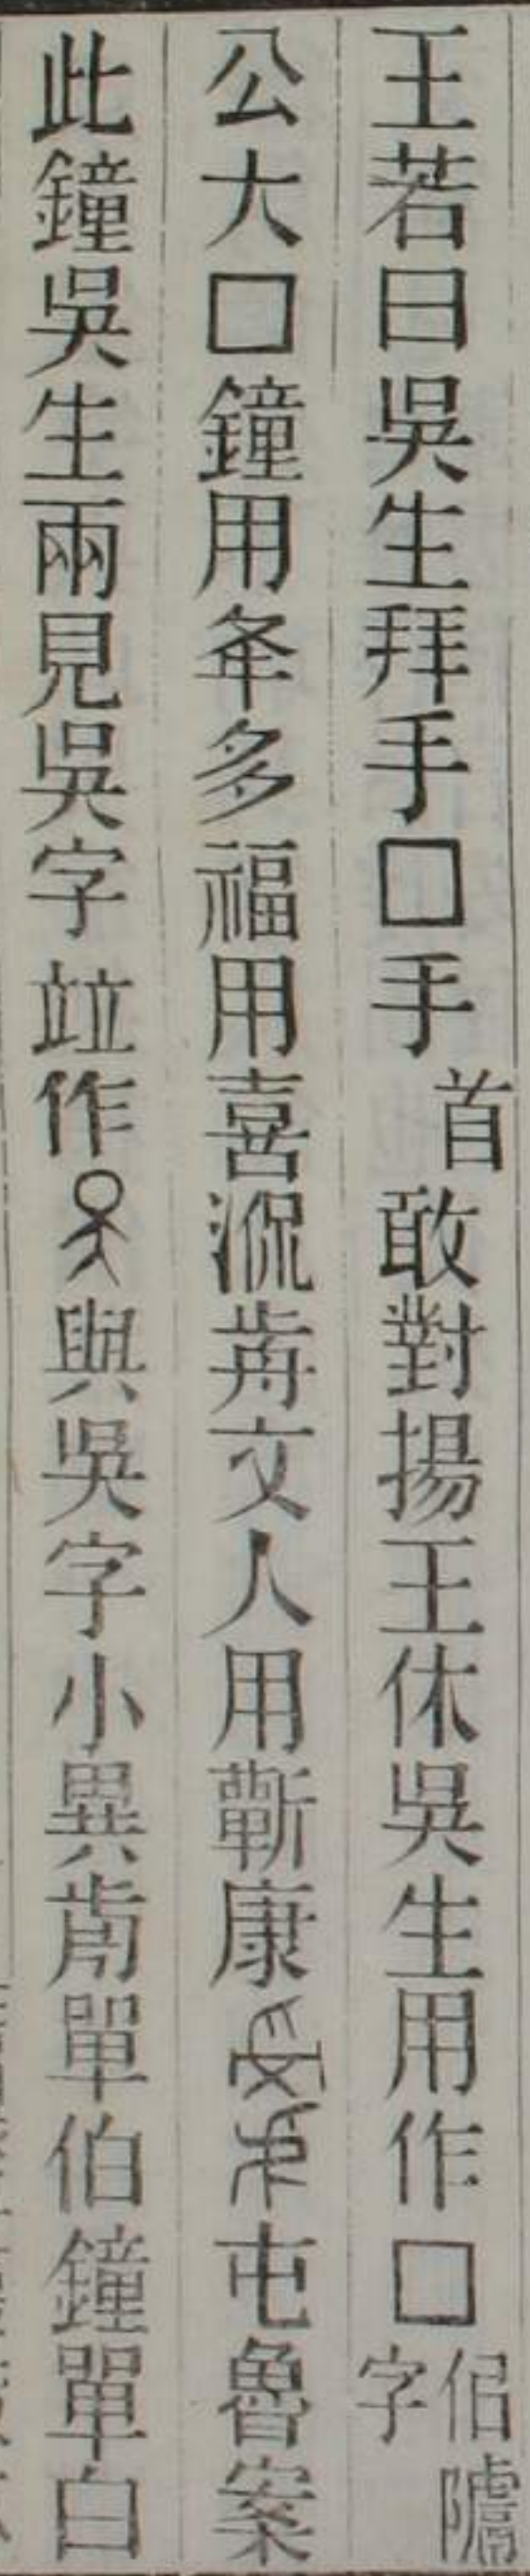 王若曰吳生拜手□手首敢對揚王休吳生用作□佀字
公大□鐘用夆多福用喜歬文人用蘄康屯魯案
此鐘吳生兩見吳字竝作與吳字小異前單伯鐘單白